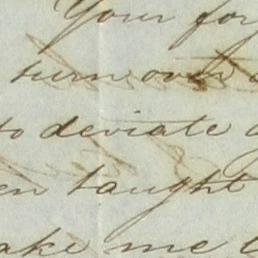 Your for
turn over
to deviate
en taught
ake me